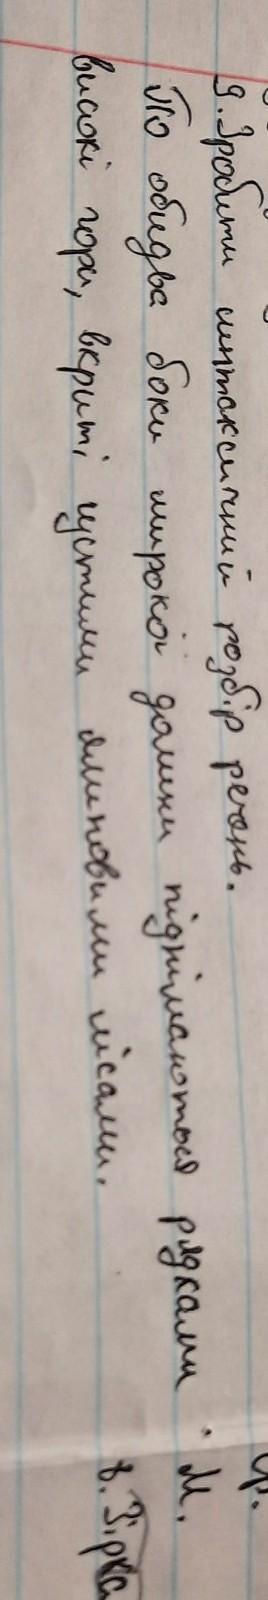 9. Зробити синтаксичний розбір речень.
По обидва боки широкої долини піднімаються рядками
високі гори, вкриті густими ялиновими лісами.